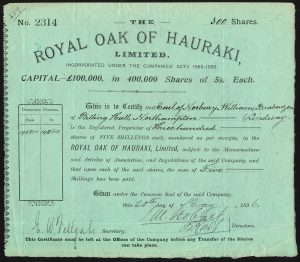 No. 2314
300 Shares.
THE
ROYAL OAK OF HAURAKI,
LIMITED.
INCORPORATED UNDER THE COMPANIES' ACTS 1862-1890.
CAPITAL—£100,000, in 400,000 Shares of 5s. Each.
This is to Certify that Earl of Norbury, William
of Billing Hall Northampton
is the Registered Proprietor of Three hundred
shares of FIVE SHILLINGS each, numbered as per margin, in the
ROYAL OAK OF HAURAKI, Limited, subject to the Memorandum
and Articles of Association, and Regulations of the said Company, and
that upon each of the said shares, the sum of Five
Shillings has been paid.
Given under the Common Seal of the said Company,
this 20th day of May 1896
Secretary.
Directors.
This Certificate must be left at the Offices of the Company before any Transfer of the Shares
can take place.